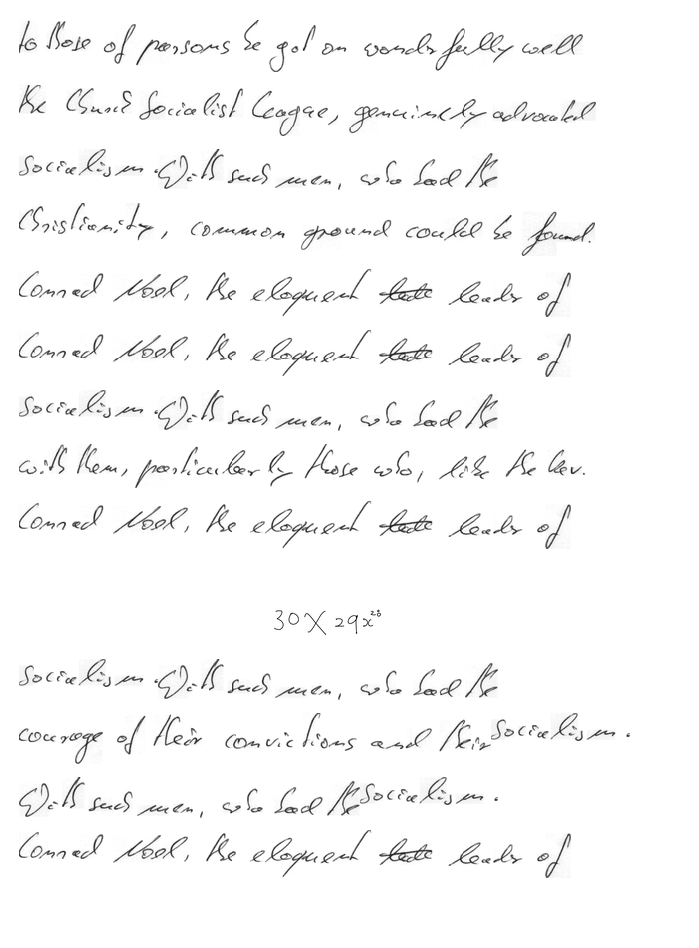 to those of parsons he got on wonderfully well
the Church Socialist League, genuinely advocated
Socialism. With such men, who had the
Christianity, common ground could be found.
Conrad Noel, the eloquent leader of
Conrad Noel, the eloquent leader of
Socialism. With such men, who had the
with them, particularly those who, like the Rev.
Conrad Noel, the eloquent leader of
30 X 29x^28
Socialism. With such men, who had the
courage of their convictions and their Socialism.
With such men, who had the Socialism.
Conrad Noel, the eloquent leader of